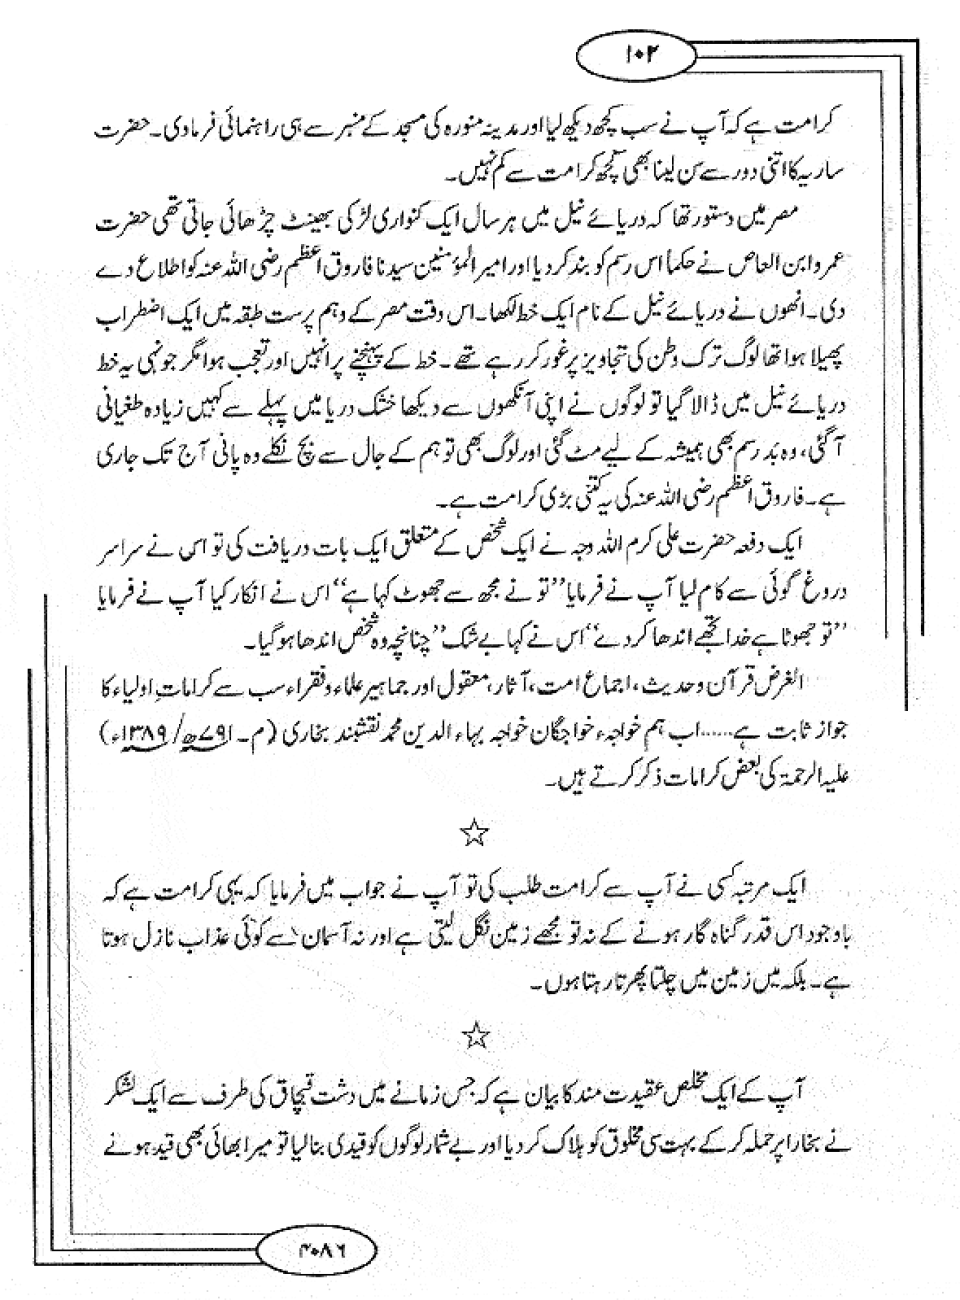 ۱۰۲
کرامت ہے کہ آپ نے سب کچھ دیکھ لیا اور مدینہ منورہ کی مسجد کے منبر سے ہی راہنمائی فرمادی۔ حضرت
ساریہ کا اتنی دور سے سن لینا بھی کچھ کرامت سے کم نہیں۔
مصر میں دستور تھا کہ دریائے نیل میں ہر سال ایک کنواری لڑکی بھینٹ چڑھائی جاتی تھی حضرت
عمرو ابن العاص نے حکماً اس رسم کو بند کر دیا اور امیر المؤمنین سیدنا فاروق اعظم رضی اللہ عنہ کو اطلاع دے
دی۔ انھوں نے دریائے نیل کے نام ایک خط لکھا۔ اس وقت مصر کے وہم پرست طبقہ میں ایک اضطراب
پھیلا ہوا تھا لوگ ترک وطن کی تجاویز پر غور کر رہے تھے۔ خط کے پہنچنے پر انہیں اور تعجب ہوا مگر جونہی یہ خط
دریائے نیل میں ڈالا گیا تو لوگوں نے اپنی آنکھوں سے دیکھا خشک دریا میں پہلے سے کہیں زیادہ طغیانی
آ گئی، وہ بد رسم بھی ہمیشہ کے لیے مٹ گئی اور لوگ بھی توہم کے جال سے بچ نکلے وہ پانی آج تک جاری
ہے۔ فاروق اعظم رضی اللہ عنہ کی یہ کتنی بڑی کرامت ہے۔
ایک دفعہ حضرت علی کرم اللہ وجہ نے ایک شخص کے متعلق ایک بات دریافت کی تو اس نے سراسر
دروغ گوئی سے کام لیا آپ نے فرمایا ”تو نے مجھ سے جھوٹ کہا ہے“ اس نے انکار کیا آپ نے فرمایا
”تو جھوٹا ہے خدا تجھے اندھا کر دے“ اس نے کہا بے شک“ چنانچہ وہ شخص اندھا ہو گیا۔
الغرض قرآن و حدیث، اجماع امت، آثار، معقول اور جماہیر علماء و فقراء سب سے کراماتِ اولیاء کا
جواز ثابت ہے......اب ہم خواجہء خواجگان خواجہ بہاء الدین محمد نقشبند بخاری (م۔ ۷۹۱ھ/ ۱۳۸۹ء)
علیہ الرحمۃ کی بعض کرامات ذکر کرتے ہیں۔
☆
ایک مرتبہ کسی نے آپ سے کرامت طلب کی تو آپ نے جواب میں فرمایا کہ یہی کرامت ہے کہ
باوجود اس قدر گناہ گار ہونے کے نہ تو مجھے زمین نگل لیتی ہے اور نہ آسمان سے کوئی عذاب نازل ہوتا
ہے۔ بلکہ میں زمین میں چلتا پھرتا رہتا ہوں۔
☆
آپ کے ایک مخلص عقیدت مند کا بیان ہے کہ جس زمانے میں دشت قبچاق کی طرف سے ایک لشکر
نے بخارا پر حملہ کر کے بہت سی مخلوق کو ہلاک کر دیا اور بے شمار لوگوں کو قیدی بنا لیا تو میرا بھائی بھی قید ہونے
۴۰۸۶